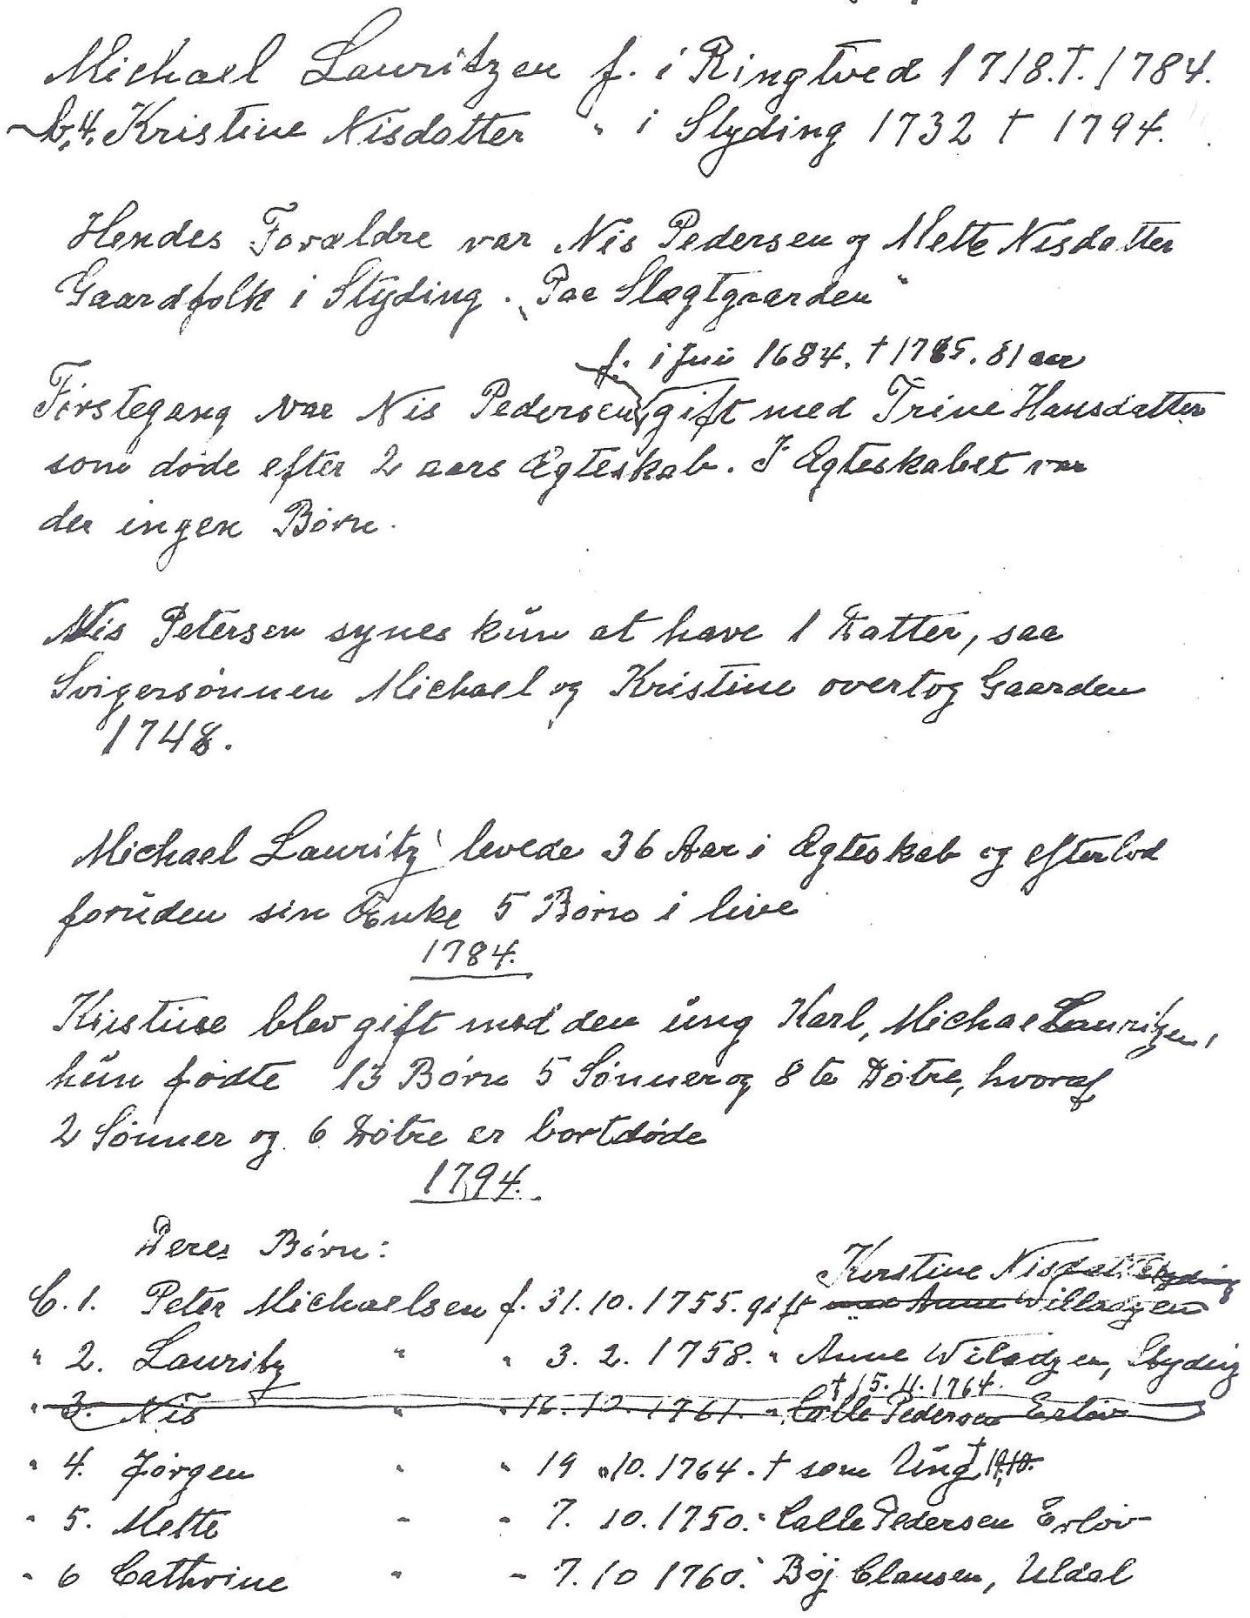 Michael Lauritzen f. i Ringtved 1718. †. 1784.
b.4. Kristine Nisdatter " i Styding 1732 † 1794.
Hendes Forældre var Nis Pedersen og Mette Nisdatter
Gaardfolk i Styding. „Paa Slægtgaarden"
f. i Jui 1684. † 1765. 81 aar
Førstegang var Nis Pedersen gift med Trine Hansdatter
som døde efter 2 aars Ægteskab. I Ægteskabet var
der ingen Børn.
Nis Petersen synes kün at have 1 Datter, saa
Svigersønnen Michael og Kristine overtog Gaarden
1748.
Michael Lauritz levede 36 Aar i Ægteskab og efterlod
forüden sin Enke 5 Børn i live
1784.
Kristine blev gift med den üng Karl, Michael Lauritzen,
hün fødte 13 Børn 5 Sønner og 8te Døtre, hvoraf
2 Sønner og 6 Døtre er bortdøde
1794.
Deres Børn:
Kirstine Nisdatt Styding
C. 1. Peter Michaelsen f. 31.10.1755. gift Anne Willadzen
" 2. Lauritz " " 3. 2. 1758. " Anne Wiladzen, Styding
† 15.11.1764.
" 3. Nis " " 16.12.1761. " Calle Pedersen Erløv
" 4. Jørgen " " 19.10.1764. † som Üng †
" 5. Mette " " 7. 10. 1750. " Calle Pedersen Erløv
" 6 Cathrine " " 7.10 1760. " Bøj Clausen, Uldal